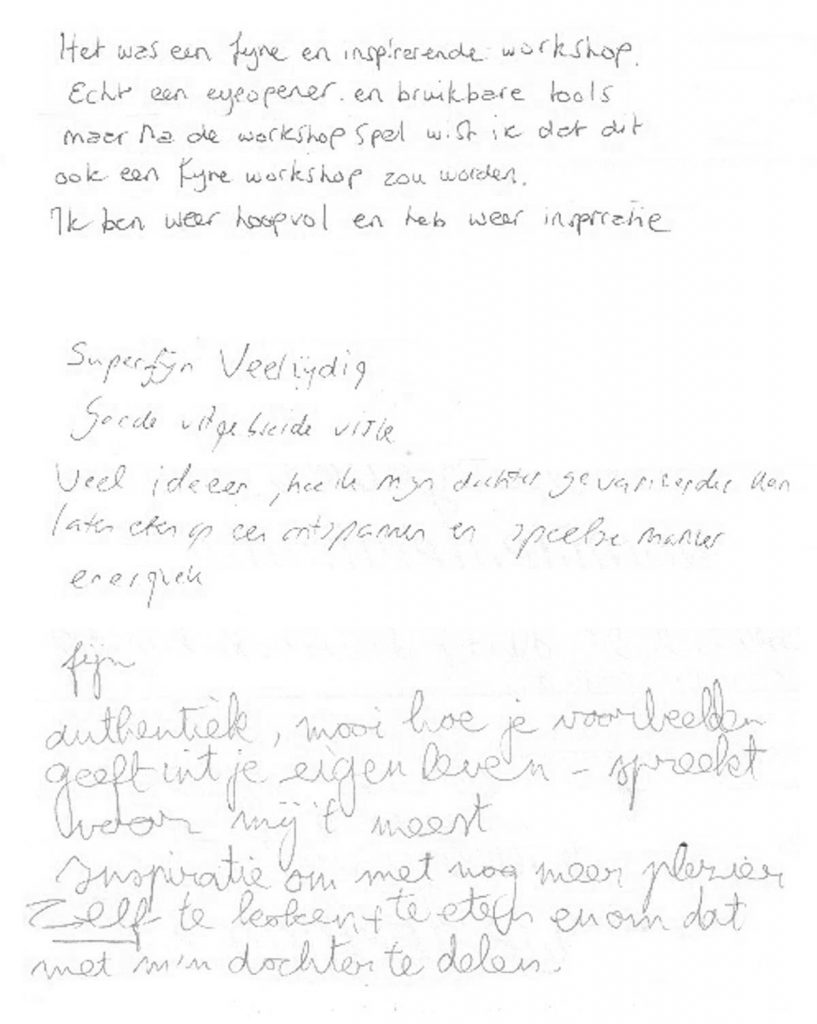 Het was een fijne en inspirerende workshop.
Echt een eyeopener en bruikbare tools
maar na de workshop spel wist ik dat dit
ook een fijne workshop zou worden.
Ik ben weer hoopvol en heb weer inspiratie
Superfijn Veelzijdig
Goede uitgebreide visie
Veel ideeen, hoe ik mijn dochter gevarieerder kan
laten eten op een ontspannen en speelse manier
energiek
fijn
authentiek, mooi hoe je voorbeelden
geeft uit je eigen leven - spreekt
voor mij 't meest
Inspiratie om met nog meer plezier
Zelf te koken + te eten en om dat
met m'n dochter te delen.